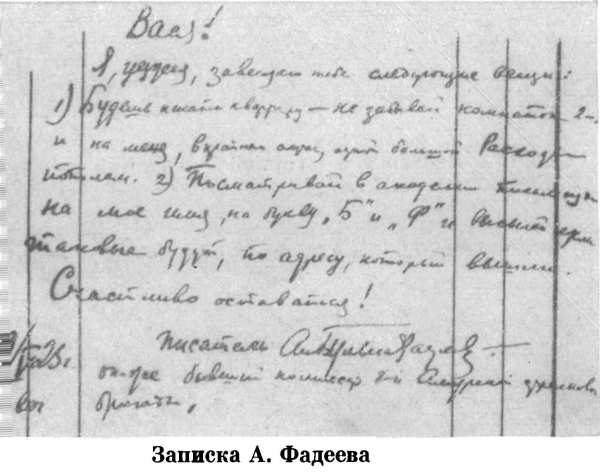 Вася!
Я, уезжая, завещаю тебе следующие вещи:
1) Будешь искать квартиру — не забывай комнаток 2-,
и на меня, в крайнем случае, одной большой. Расходы
пополам. 2) Посматривай в академии письма
на мое имя, на букву „Б" и „Ф" и высылай, если
таковые будут, по адресу, который вышлю.
Счастливо оставаться!
Писатель Булыга-Фадеев
он же бывший комиссар 8-й Амурской стрелковой
бригады,
Записка А. Фадеева